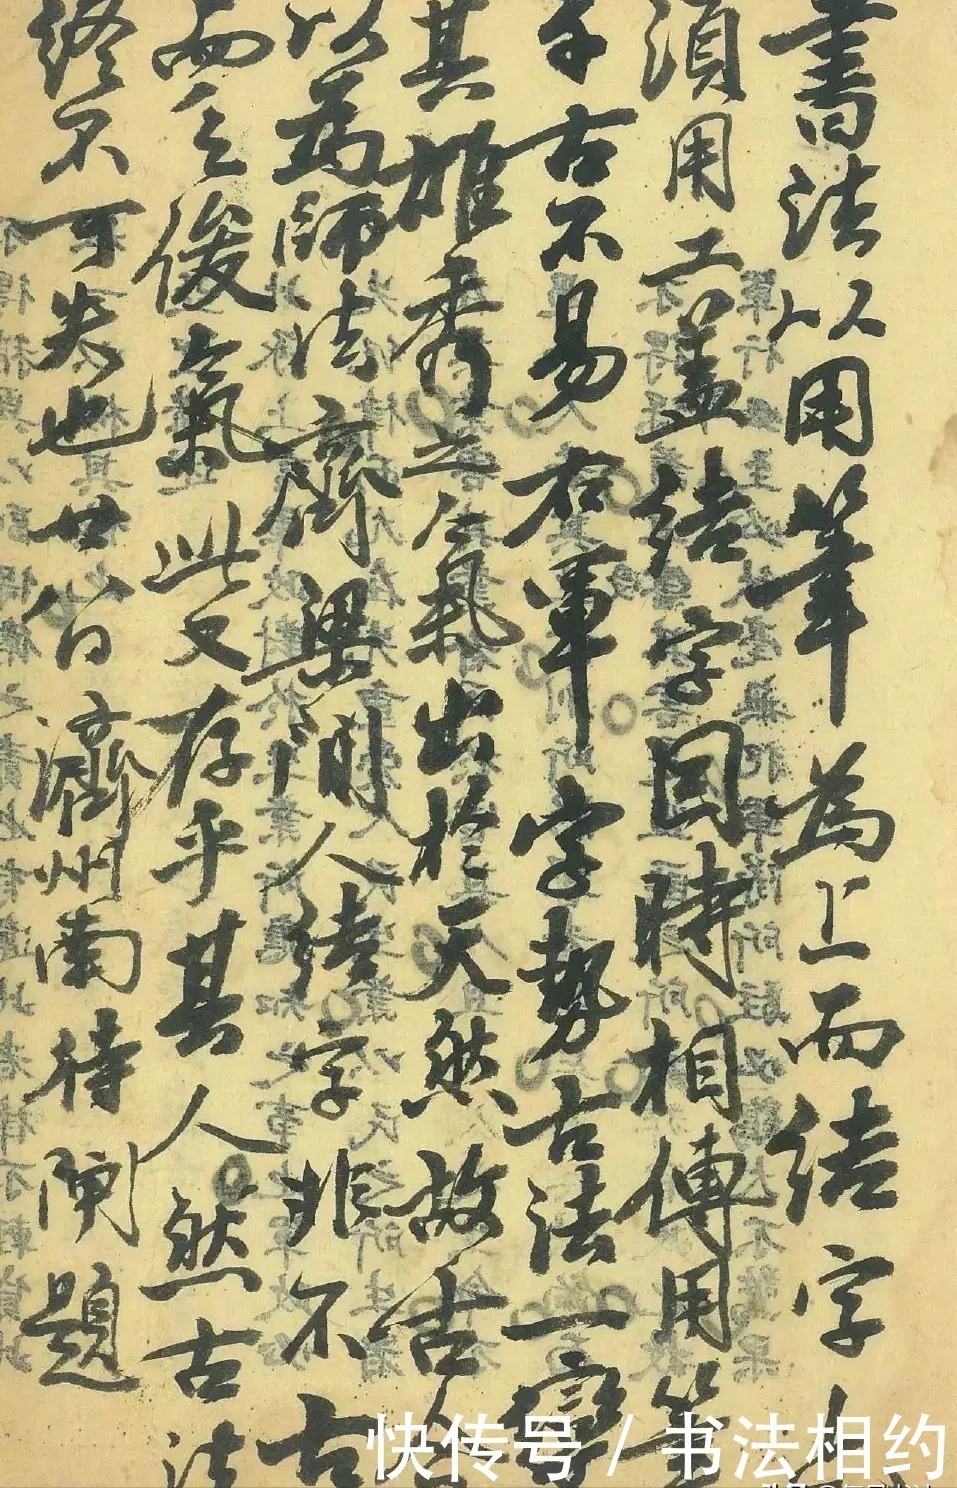 書法以用筆為上而結字亦
須用工蓋結字因時相傳用筆
千古不易右軍字勢古法一變
其雄秀之氣出於天然故古今
以為師法齊梁間人結字非不古
而乏俊氣此又存乎其人然古法
終不可失也廿八日濟州南待閘題
快传号 / 书法相约